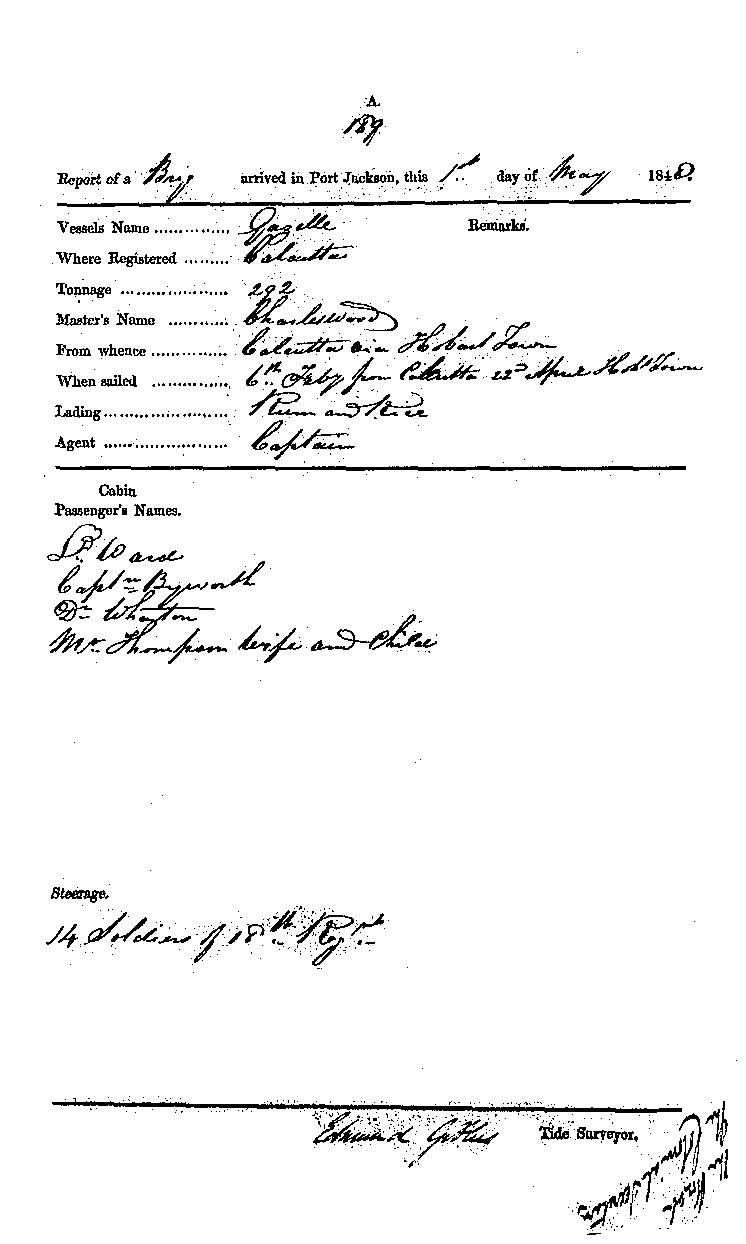 A.
189
Report of a Brig arrived in Port Jackson, this 1st day of May 1848.
Vessels Name ............... Gazelle Remarks.
Where Registered ......... Calcutta
Tonnage ..................... 292
Master's Name ............ Charleswood
From whence ............... Calcutta via Hobart Town
When sailed ............... 6th Feby from Calcutta 22d April Hobt Town
Lading ........................ Rum and Rice
Agent ........................ Captain
Cabin
Passenger's Names.
Ward
Captn Byworth
Dr Wharton
Mr Thompson Wife and Child
Steerage.
14 Soldiers of 18th Regt
Edmund Tide Surveyor.